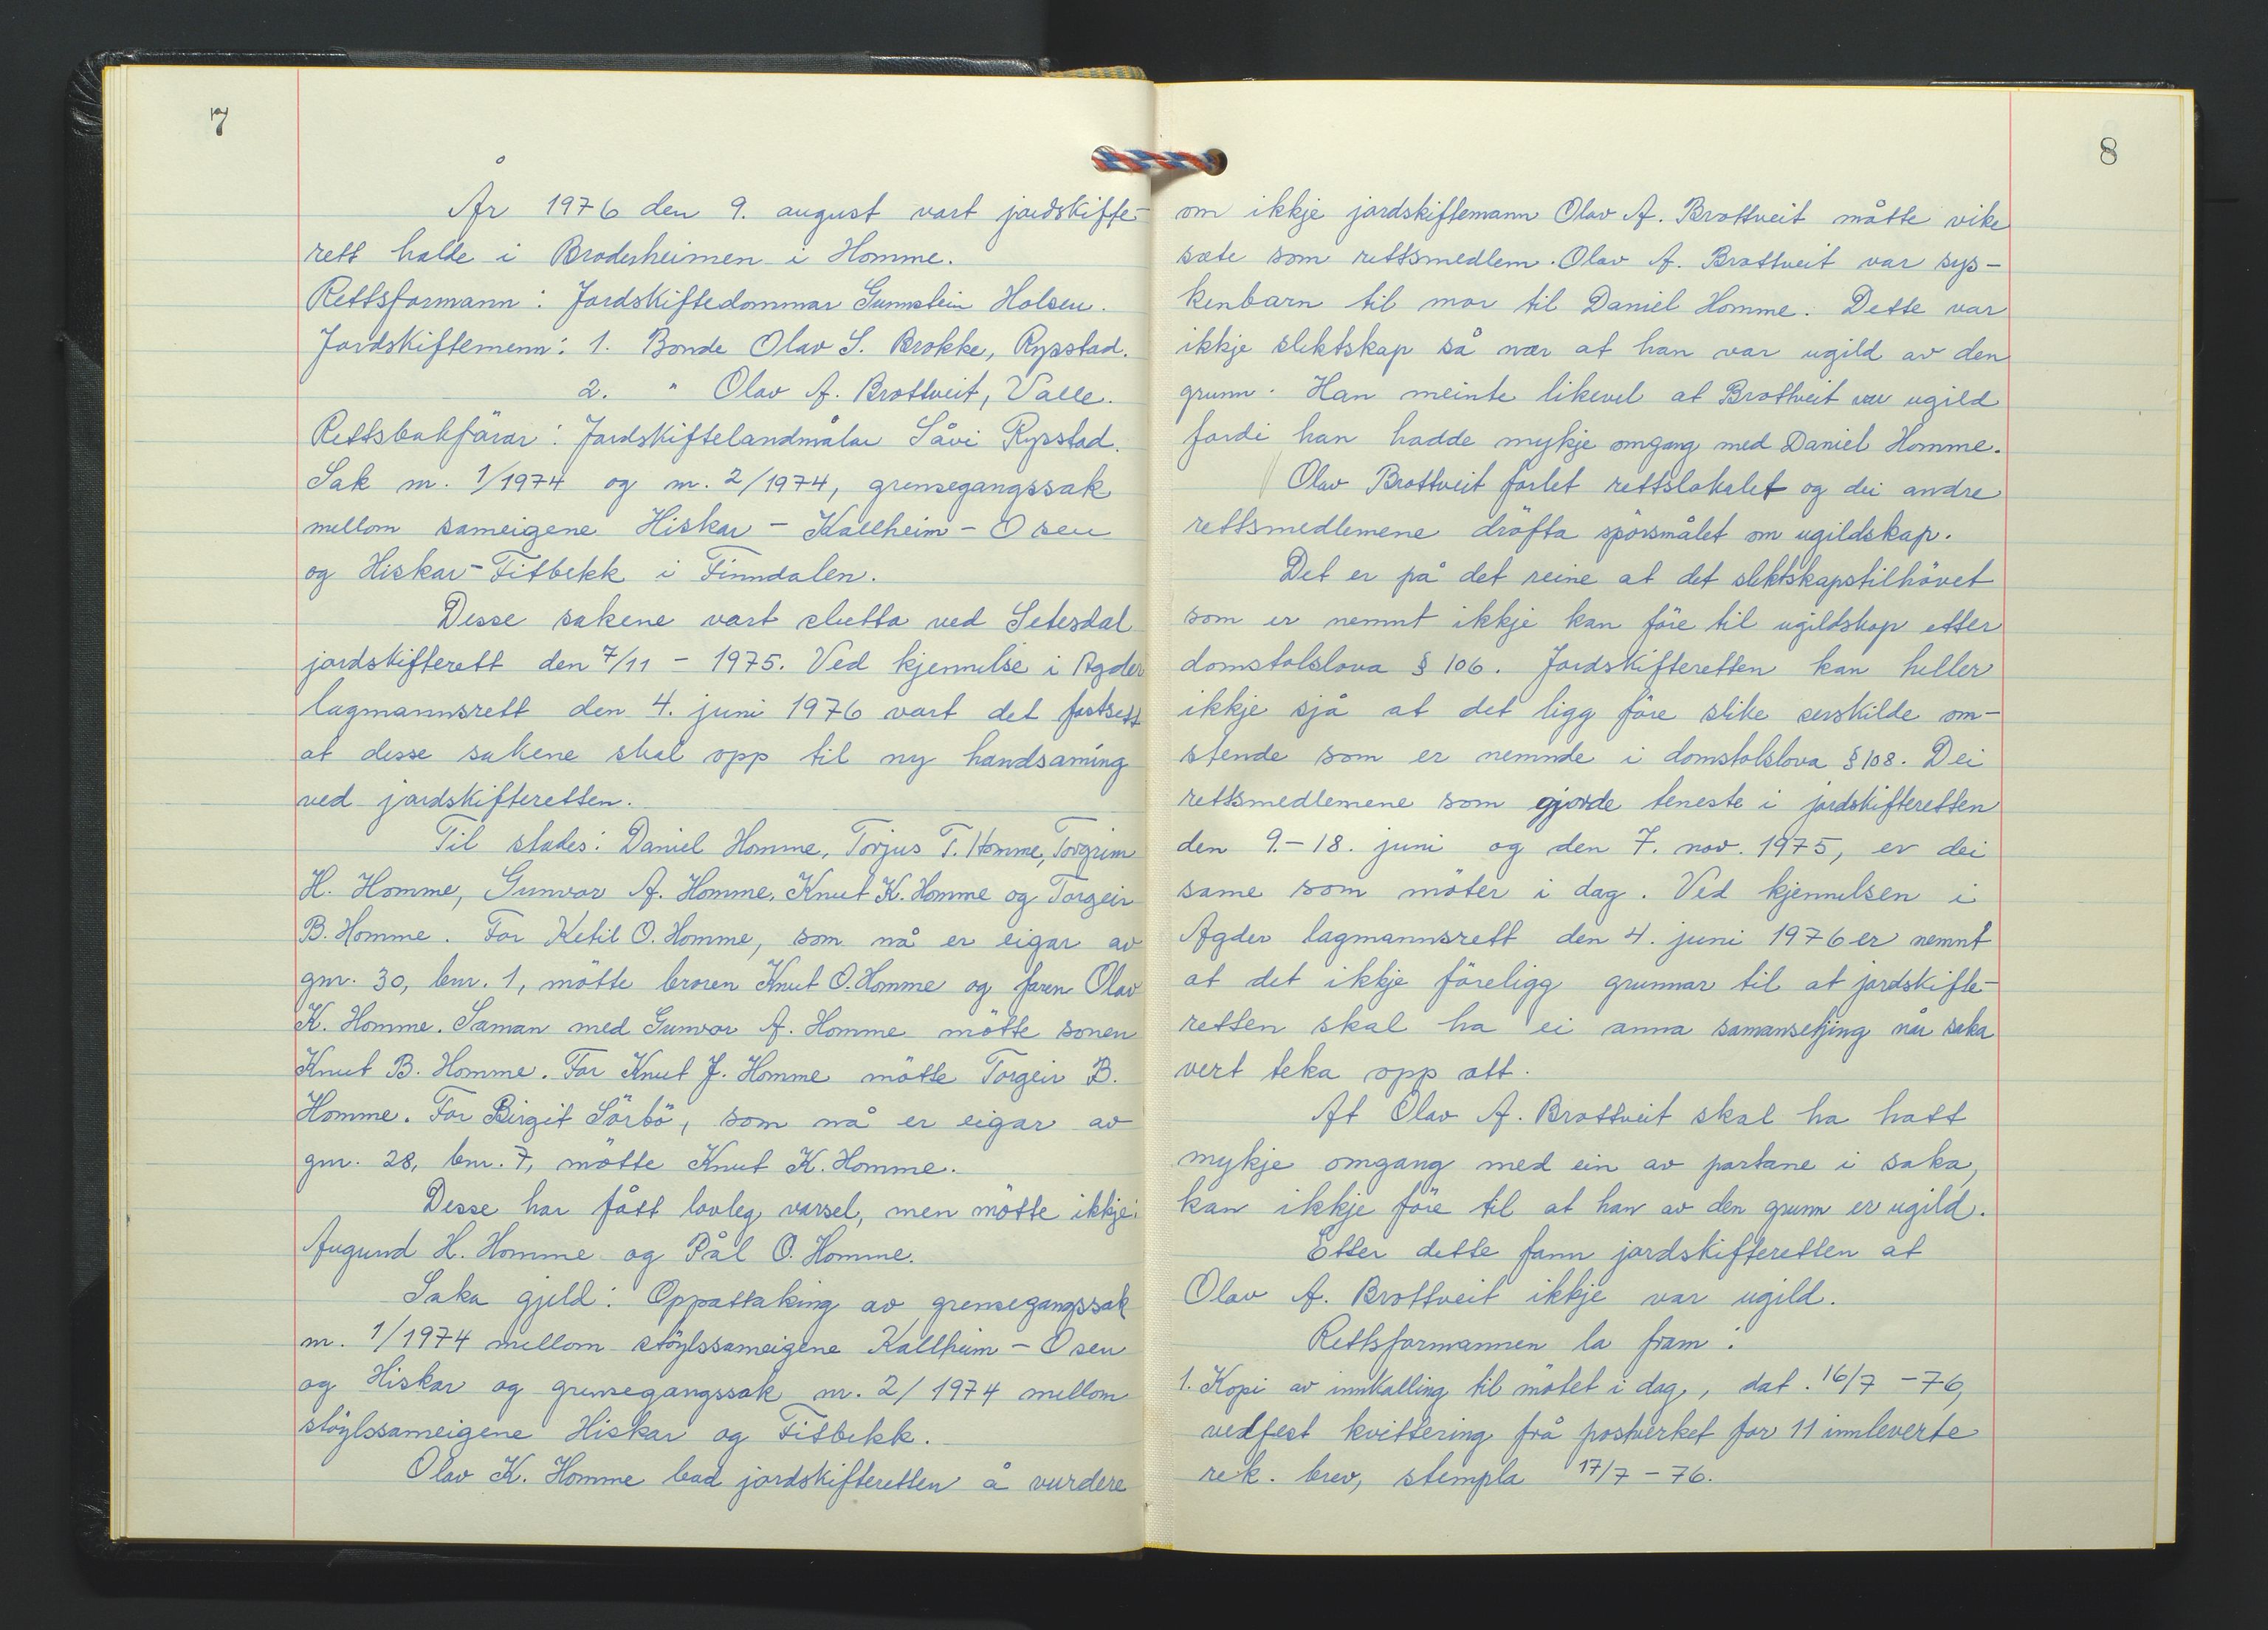 7
År 1976 den 9. august vart jordskifte-
rett halde i Brodesheimen i Homme.
Rettsformann: Jordskiftedommar Gunnstein Holsen.
Jordskiftemenn: 1. Bonde Olav S. Brokke, Rysstad.
2. " Olav A. Brottveit, Valle.
Rettsbokførar: Jordskiftelandmålar Såvi Rysstad.
Sak nr. 1/1974 og nr. 2/1974, grensegangssak
mellom sameigene Hiskar - Kallheim - Osen
og Hiskar - Fitbekk i Finndalen.
Desse sakene vart slutta ved Setesdal
jordskifterett den 7/11 - 1975. Ved kjennelse i Agder
lagmannsrett den 4. juni 1976 vart det fastsett
at desse sakene skal opp til ny handsaming
ved jordskifteretten.
Til stades: Daniel Homme, Torjus T. Homme, Torgrim
H. Homme, Gunvor A. Homme, Knut K. Homme og Torgeir
B. Homme. For Ketil O. Homme, som nå er eigar av
gnr. 30, bnr. 1, møtte broren Knut O. Homme og faren Olav
K. Homme. Saman med Gunvor A. Homme møtte sonen
Knut B. Homme. For Knut J. Homme møtte Torgeir B.
Homme. For Birgit Sørbø, som nå er eigar av
gnr. 28, bnr. 7, møtte Knut K. Homme.
Desse har fått lovleg varsel, men møtte ikkje:
Augund H. Homme og Pål O. Homme.
Saka gjeld: Oppattaking av grensegangssak
nr. 1/1974 mellom støylssameigene Kallheim - Osen
og Hiskar og grensegangssak nr. 2/1974 mellom
støylssameigene Hiskar og Fitbekk.
Olav K. Homme bad jordskifteretten å vurdere
8
om ikkje jordskiftemann Olav A. Brottveit måtte vike
sæte som rettsmedlem. Olav A. Brottveit var sys-
kenbarn til mor til Daniel Homme. Dette var
ikkje slektskap så nær at han var ugild av den
grunn. Han meinte likevel at Brottveit var ugild
fordi han hadde mykje omgang med Daniel Homme.
Olav Brottveit forlet rettslokalet og dei andre
rettsmedlemene drøfta spørsmålet om ugildskap.
Det er på det reine at det slektskapstilhøvet
som er nemnt ikkje kan føre til ugildskap etter
domstolslova § 106. Jordskifteretten kan heller
ikkje sjå at det ligg føre slike serskilde om-
stende som er nemnde i domstolslova § 108. Dei
rettsmedlemene som gjorde teneste i jordskifteretten
den 9. - 18. juni og den 7. nov. 1975, er dei
same som møter i dag. Ved kjennelsen i
Agder lagmannsrett den 4. juni 1976 er nemnt
at det ikkje føreligg grunnar til at jordskifte-
retten skal ha ei anna samansetjing når saka
vert teka opp att.
At Olav A. Brottveit skal ha hatt
mykje omgang med ein av partane i saka,
kan ikkje føre til at han av den grunn er ugild.
Etter dette fann jordskifteretten at
Olav A. Brottveit ikkje var ugild.
Rettsformannen la fram:
1. Kopi av innkalling til møtet i dag, dat. 16/7 - 76,
vedfest kvittering frå postverket for 11 innleverte
rek. brev, stempla 17/7 - 76.